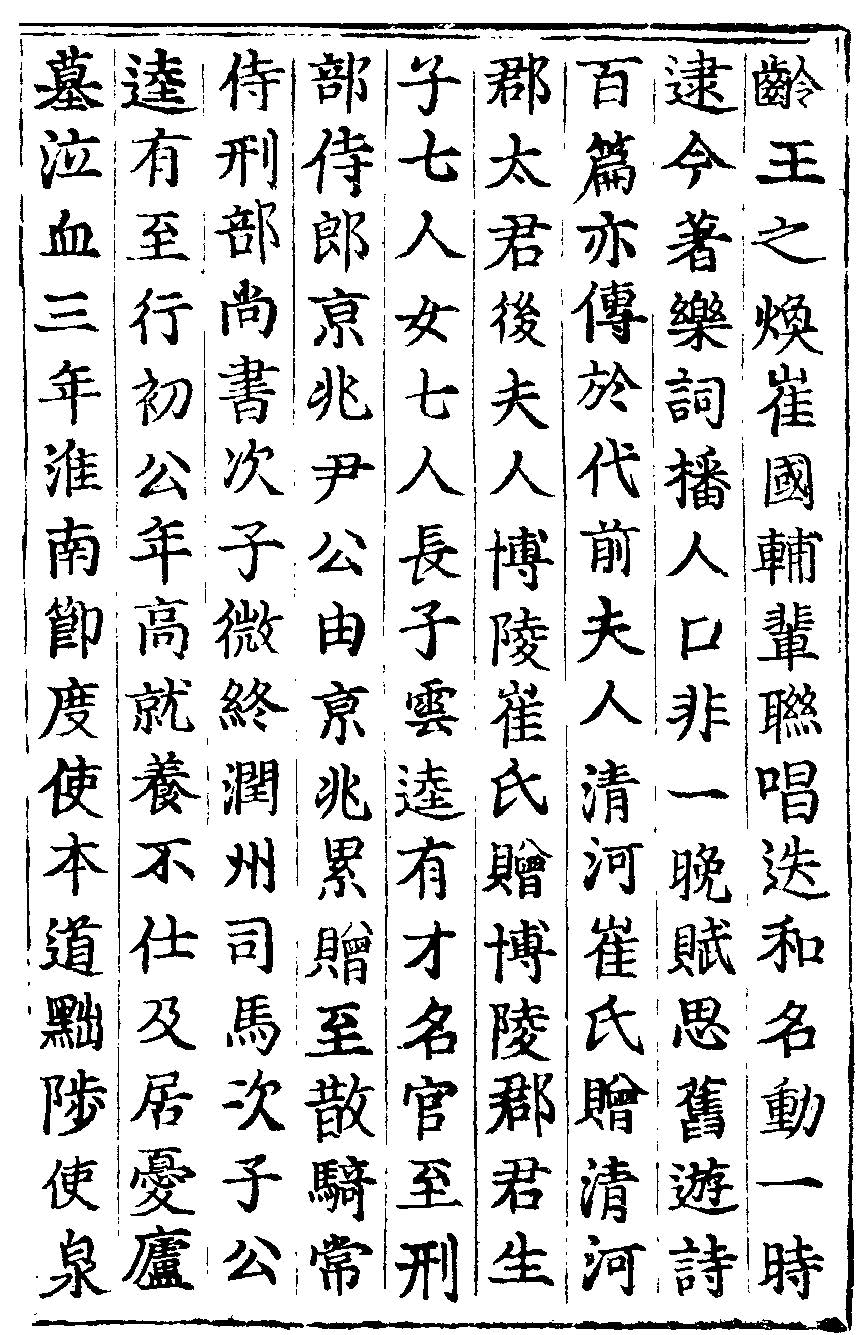 齡王之煥崔國輔輩聯唱迭和名動一時
逮今著樂詞播人口非一晚賦思舊遊詩
百篇亦傳於代前夫人清河崔氏贈清河
郡太君後夫人博陵崔氏贈博陵郡君生
子七人女七人長子雲逵有才名官至刑
部侍郎京兆尹公由京兆累贈至散騎常
侍刑部尚書次子微終潤州司馬次子公
逵有至行初公年高就養不仕及居憂廬
墓泣血三年淮南節度使本道黜陟使泉